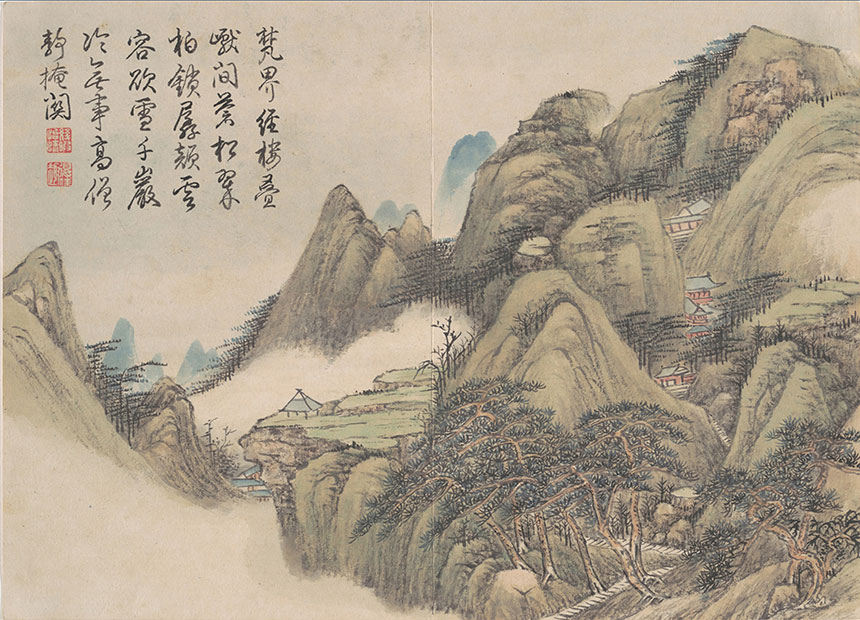 梵界經樓疊
巘間蒼松翠
柏鎖孱顏雲
容欲雪千巖
冷無事高僧
靜掩關